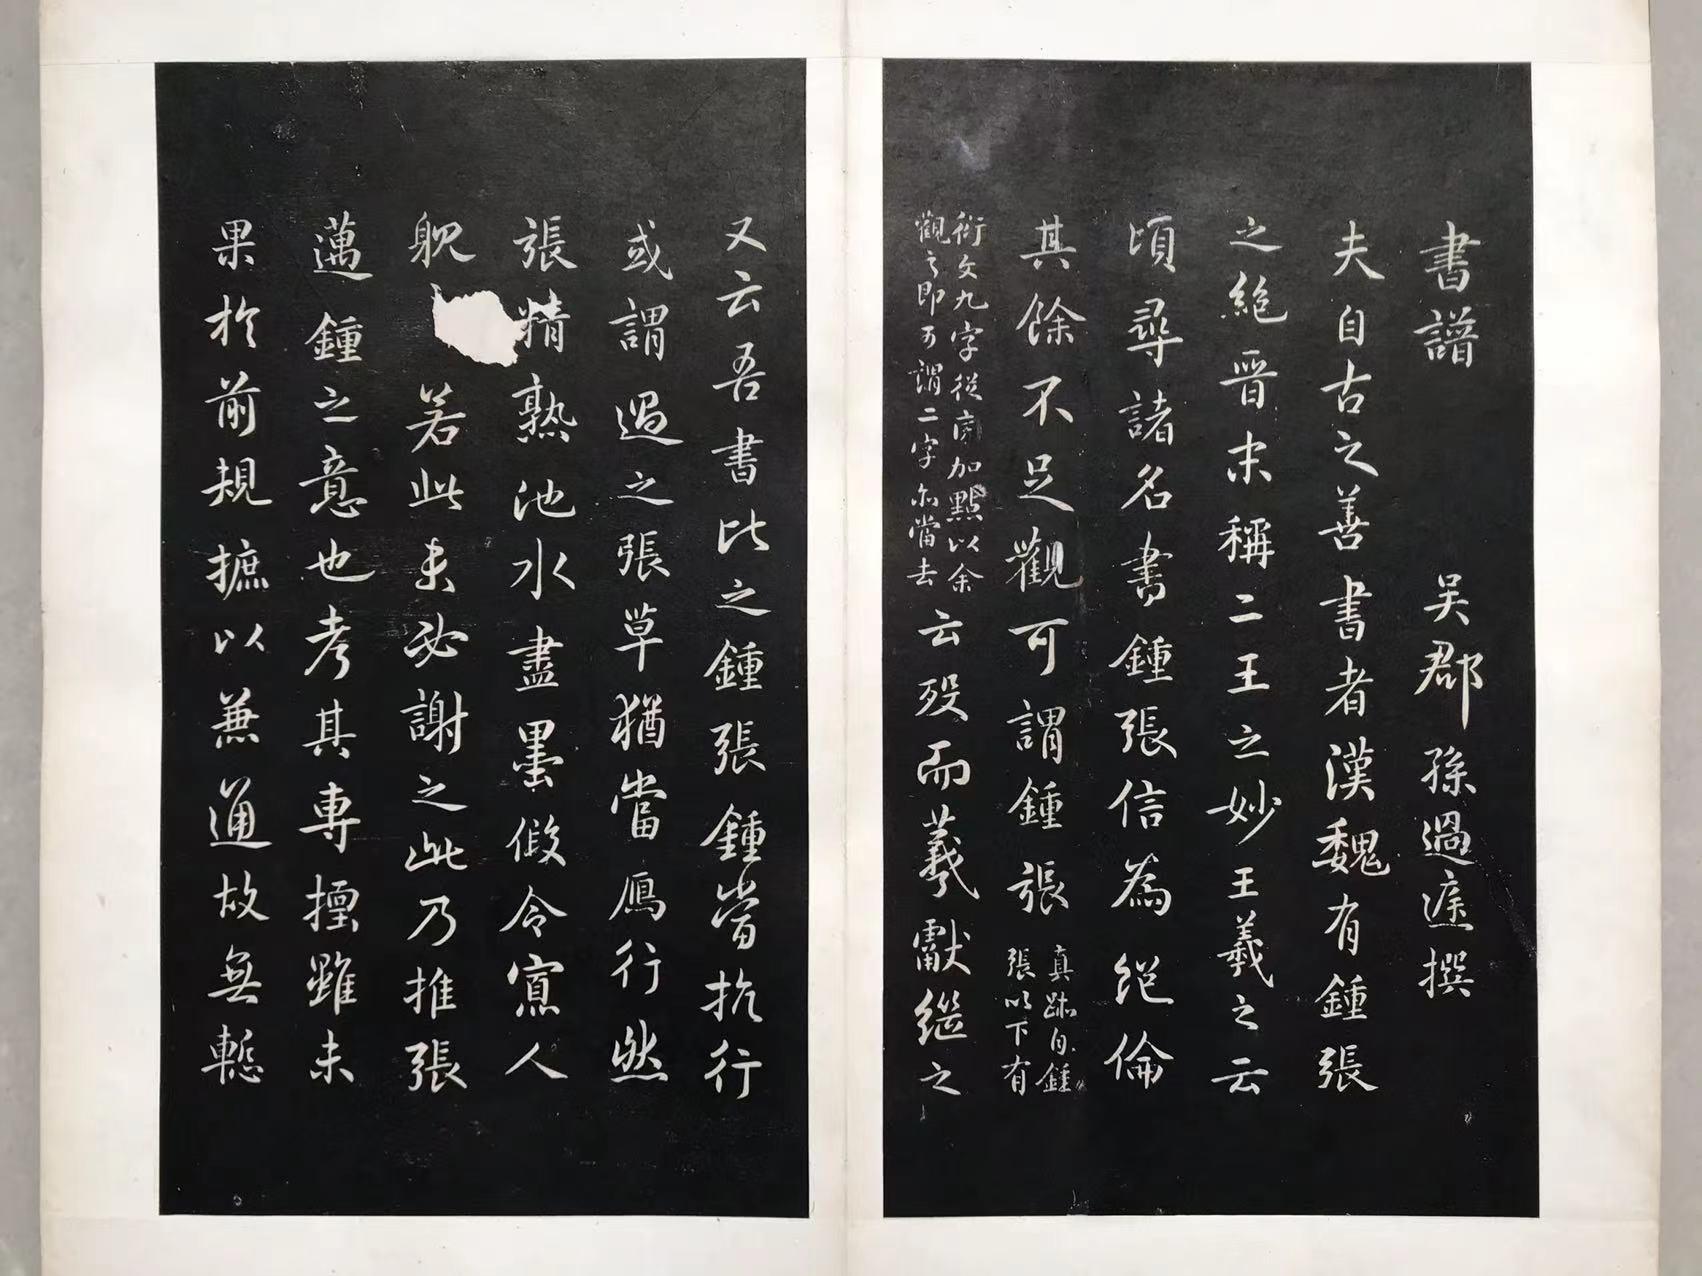 書譜　吳郡孫過庭撰
夫自古之善書者漢魏有鍾張
之絕晉末稱二王之妙王羲之云
頃尋諸名書鍾張信為絕倫
其餘不足觀可謂鍾張真跡自鍾張以下有
衍文九字從旁加點以余觀之即可謂二字亦當去云歿而羲獻繼之
又云吾書比之鍾張鍾當抗行
或謂過之張草猶當鴈行然
張精熟池水盡墨假令寡人
躭若此未必謝之此乃推張
邁鍾之意也考其專擅雖未
果於前規摭以兼通故無慙